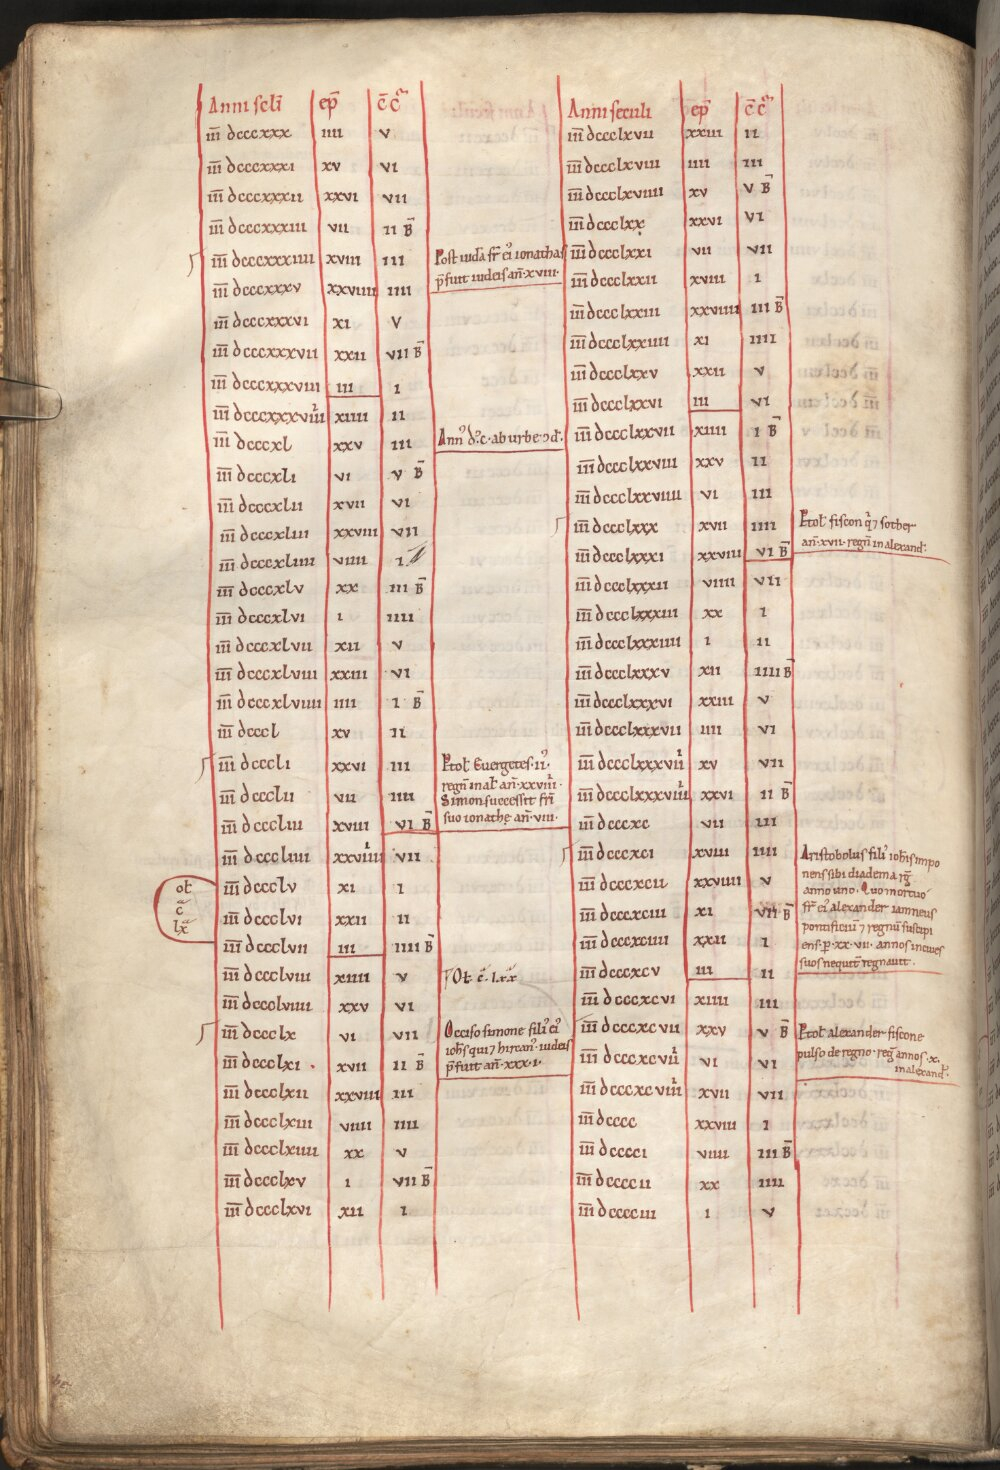 Anni scl̄i ep̄ c̄ c̄ᵃ
iiī dcccxxx iiii v
iiī dcccxxxi xv vi
iiī dcccxxxii xxvi vii
iiī dcccxxxiii vii ii B̄
iiī dcccxxxiiii xviii iii
iiī dcccxxxv xxviiii iiii
iiī dcccxxxvi xi v
iiī dcccxxxvii xxii vii B̄
iiī dcccxxxviii iii i
iiī dcccxxxviiii xiiii ii
iiī dcccxl xxv iii
iiī dcccxli vi v B̄
iiī dcccxlii xvii vi
iiī dcccxliii xxviii vii
iiī dcccxliiii viiii i
iiī dcccxlv xx iii B̄
iiī dcccxlvi i iiii
iiī dcccxlvii xii v
iiī dcccxlviii xxiii vi
iiī dcccxlviiii iiii i B̄
iiī dcccl xv ii
iiī dcccli xxvi iii
iiī dccclii vii iiii
iiī dcccliii xviii vi B̄
iiī dcccliiii xxviiii vii
iiī dccclv xi i
iiī dccclvi xxii ii
iiī dccclvii iii iiii B̄
iiī dccclviii xiiii v
iiī dccclviiii xxv vi
iiī dccclx vi vii
iiī dccclxi xvii ii B̄
iiī dccclxii xxviii iii
iiī dccclxiii viiii iiii
iiī dccclxiiii xx v
iiī dccclxv i vii B̄
iiī dccclxvi xii i
ol̄
c̄ᵃ
lx̄ᵃ
Post iudā fr̄ ei᾿ ionathas
p̄fuit iudeis an̄·xviii·
Ann᾿ dc·ab urbe ↄd̄·
Ptol̄ Euergetes·ii᾿·
regn̄ in al̄ an̄·xxviiii·
Simon successit fr̄i
suo ionathe·an̄·viii·
Ol̄ c̄ᵃ·lxxᵃ
Occiso simone fili᾿ ei᾿
ioh̄s qui ⁊ hircan᾿ iudeis
p̄fuit an̄·xxx·i·
Anni seculi ep̄ c̄ c̄ᵃ
iiī dccclxvii xxiii ii
iiī dccclxviii iiii iii
iiī dccclxviiii xv v B̄
iiī dccclxx xxvi vi
iiī dccclxxi vii vii
iiī dccclxxii xviii i
iiī dccclxxiii xxviiii iii B̄
iiī dccclxxiiii xi iiii
iiī dccclxxv xxii v
iiī dccclxxvi iii vi
iiī dccclxxvii xiiii i B̄
iiī dccclxxviii xxv ii
iiī dccclxxviiii vi iii
iiī dccclxxx xvii iiii
iiī dccclxxxi xxviii vi B̄
iiī dccclxxxii viiii vii
iiī dccclxxxiii xx i
iiī dccclxxxiiii i ii
iiī dccclxxxv xii iiii B̄
iiī dccclxxxvi xxiii v
iiī dccclxxxvii iiii vi
iiī dccclxxxviii xv vii
iiī dccclxxxviiii xxvi ii B̄
iiī dcccxc vii iii
iiī dcccxci xviii iiii
iiī dcccxcii xxviiii v
iiī dcccxciii xi vii B̄
iiī dcccxciiii xxii i
iiī dcccxcv iii ii
iiī dcccxcvi xiiii iii
iiī dcccxcvii xxv v B̄
iiī dcccxcviii vi vi
iiī dcccxcviiii xvii vii
iiī dcccc xxviii i
iiī dcccci viiii iii B̄
iiī dccccii xx iiii
iiī dcccciii i v
Ptol̄ fiscon q᾿ ⁊ sother
an̄·xvii·regn̄ in alexand̄·
Aristobolus fili᾿ ioh̄is impo
nens sibi diadema rḡ
anno uno. Quo mortuo
fr̄ ei᾿ alexander ianneus
pontificiū ⁊ regnū suscipi
ens·p̄·xx·vii·annos in ciues
suos nequit̄ regnauit·
Ptol̄ alexander fiscone
pulso de regno·reḡ annos·x·
in alexand̄·